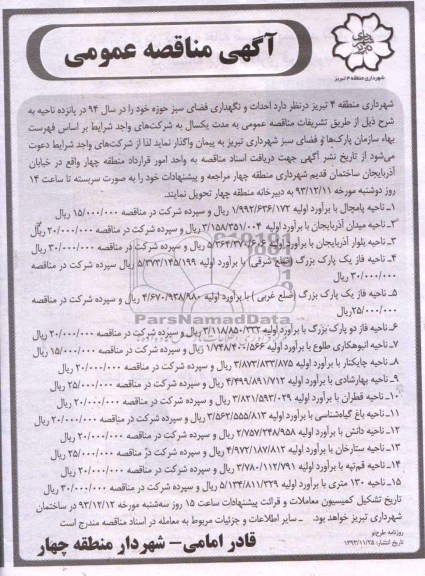 آگهی مناقصه عمومی
شهرداری منطقه ۴ تبریز
شهرداری منطقه ۴ تبریز درنظر دارد احداث و نگهداری فضای سبز حوزه خود را در سال ۹۴ در پانزده ناحیه به
شرح ذیل از طریق تشریفات مناقصه عمومی به مدت یکسال به شرکت‌های واجد شرایط بر اساس فهرست
بهاء سازمان پارک‌ها و فضای سبز شهرداری تبریز به پیمان واگذار نماید لذا از شرکت‌های واجد شرایط دعوت
می‌شود از تاریخ نشر آگهی جهت دریافت اسناد مناقصه به واحد امور قرارداد منطقه چهار واقع در خیابان
آذربایجان ساختمان قدیم شهرداری منطقه چهار مراجعه و پیشنهادات خود را به صورت سربسته تا ساعت ۱۴
روز دوشنبه مورخه ۹۳/۱۲/۱۱ به دبیرخانه منطقه چهار تحویل نمایند.
۱- ناحیه پامچال با برآورد اولیه ۱/۹۹۲/۶۳۶/۱۷۳ ریال و سپرده شرکت در مناقصه ۱۵/۰۰۰/۰۰۰ ریال
۲- ناحیه میدان آذربایجان با برآورد اولیه ۳/۱۵۸/۳۵۱/۰۰۴ ریال و سپرده شرکت در مناقصه ۲۰/۰۰۰/۰۰۰ ریال
۳- ناحیه بلوار آذربایجان با برآورد اولیه ۵/۳۶۴/۳۷۰/۶۰۶ ریال و سپرده شرکت در مناقصه ۳۰/۰۰۰/۰۰۰ ریال
۴- ناحیه فاز یک پارک بزرگ (ضلع شرقی) با برآورد اولیه ۵/۳۷۳/۱۴۵/۱۹۹ ریال سپرده شرکت در مناقصه
۳۰/۰۰۰/۰۰۰ ریال
۵- ناحیه فاز یک پارک بزرگ (ضلع غربی) با برآورد اولیه ۴/۶۷۰/۹۳۸/۹۸۰ ریال و سپرده شرکت در مناقصه
۲۵/۰۰۰/۰۰۰ ریال
ParsNamadData
۶- ناحیه فاز دو پارک بزرگ با برآورد اولیه ۳/۱۱۸/۸۵۰/۲۳۲ ریال و سپرده شرکت در مناقصه ۲۰/۰۰۰/۰۰۰ ریال
۷- ناحیه انبوهکاری طلوع با برآورد اولیه ۱/۷۴۸/۴۰۰/۵۶۶ ریال و سپرده شرکت در مناقصه ۱۵/۰۰۰/۰۰۰ ریال
۸- ناحیه چایکنار با برآورد اولیه ۳/۸۷۳/۸۳۳/۸۷۵ ریال و سپرده شرکت در مناقصه ۲۰/۰۰۰/۰۰۰ ریال
۹- ناحیه بهارشادی با برآورد اولیه ۴/۴۹۹/۸۹۱/۷۱۲ ریال و سپرده شرکت در مناقصه ۲۵/۰۰۰/۰۰۰ ریال
۱۰- ناحیه قطران با برآورد اولیه ۳/۸۲۱/۵۹۳/۰۲۹ ریال و سپرده شرکت در مناقصه ۲۰/۰۰۰/۰۰۰ ریال
۱۱- ناحیه باغ گیاه‌شناسی با برآورد اولیه ۳/۵۶۲/۵۵۵/۸۱۳ ریال و سپرده شرکت در مناقصه ۲۰/۰۰۰/۰۰۰ ریال
۱۲- ناحیه دانش با برآورد اولیه ۲/۷۵۷/۲۴۸/۹۵۸ ریال و سپرده شرکت در مناقصه ۲۰/۰۰۰/۰۰۰ ریال
۱۳- ناحیه ستارخان با برآورد اولیه ۴/۹۷۲/۱۸۷/۸۱۲ ریال و سپرده شرکت در مناقصه ۲۵/۰۰۰/۰۰۰ ریال
۱۴- ناحیه قم‌تپه با برآورد اولیه ۳/۷۸۰/۱۱۲/۷۹۱ ریال و سپرده شرکت در مناقصه ۲۰/۰۰۰/۰۰۰ ریال
۱۵- ناحیه ۱۳۰ متری با برآورد اولیه ۵/۱۳۴/۸۱۱/۳۲۹ ریال و سپرده شرکت در مناقصه ۳۰/۰۰۰/۰۰۰ ریال
تاریخ تشکیل کمیسیون معاملات و قرائت پیشنهادات ساعت ۱۵ روز سه‌شنبه مورخه ۹۳/۱۲/۱۲ در ساختمان
شهرداری تبریز خواهد بود. ـ سایر اطلاعات و جزئیات مربوط به معامله در اسناد مناقصه مندرج است
قادر امامی – شهردار منطقه چهار
روزنامه طرح‌نو
تاریخ انتشار: ۱۳۹۳/۱۱/۲۵